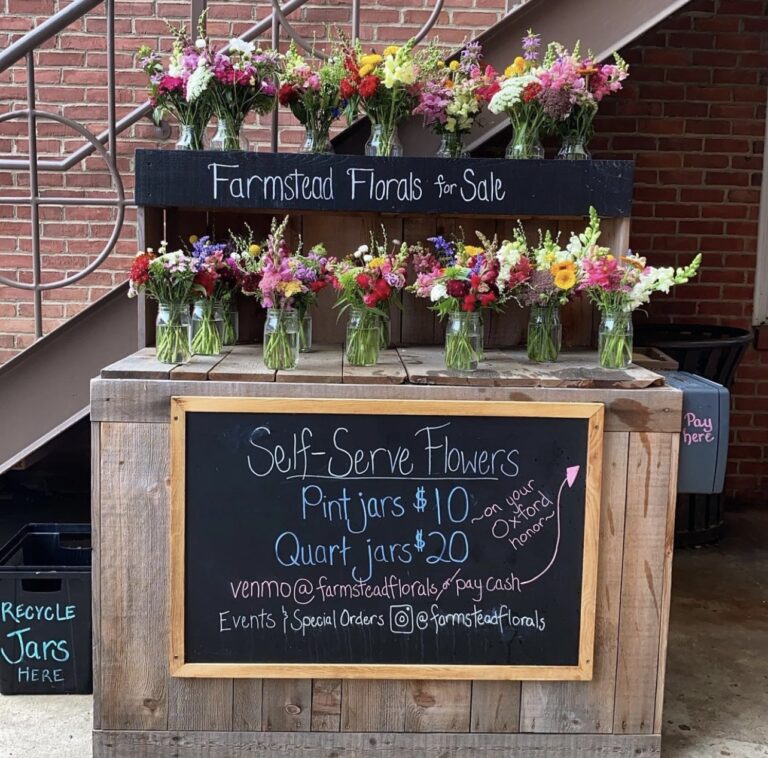 Farmstead Florals for Sale
Self-Serve Flowers
Pint jars $10
Quart jars $20
~on your Oxford honor~
venmo@farmsteadflorals or pay cash
Events & Special Orders @farmsteadflorals
Pay here
RECYCLE
Jars
HERE